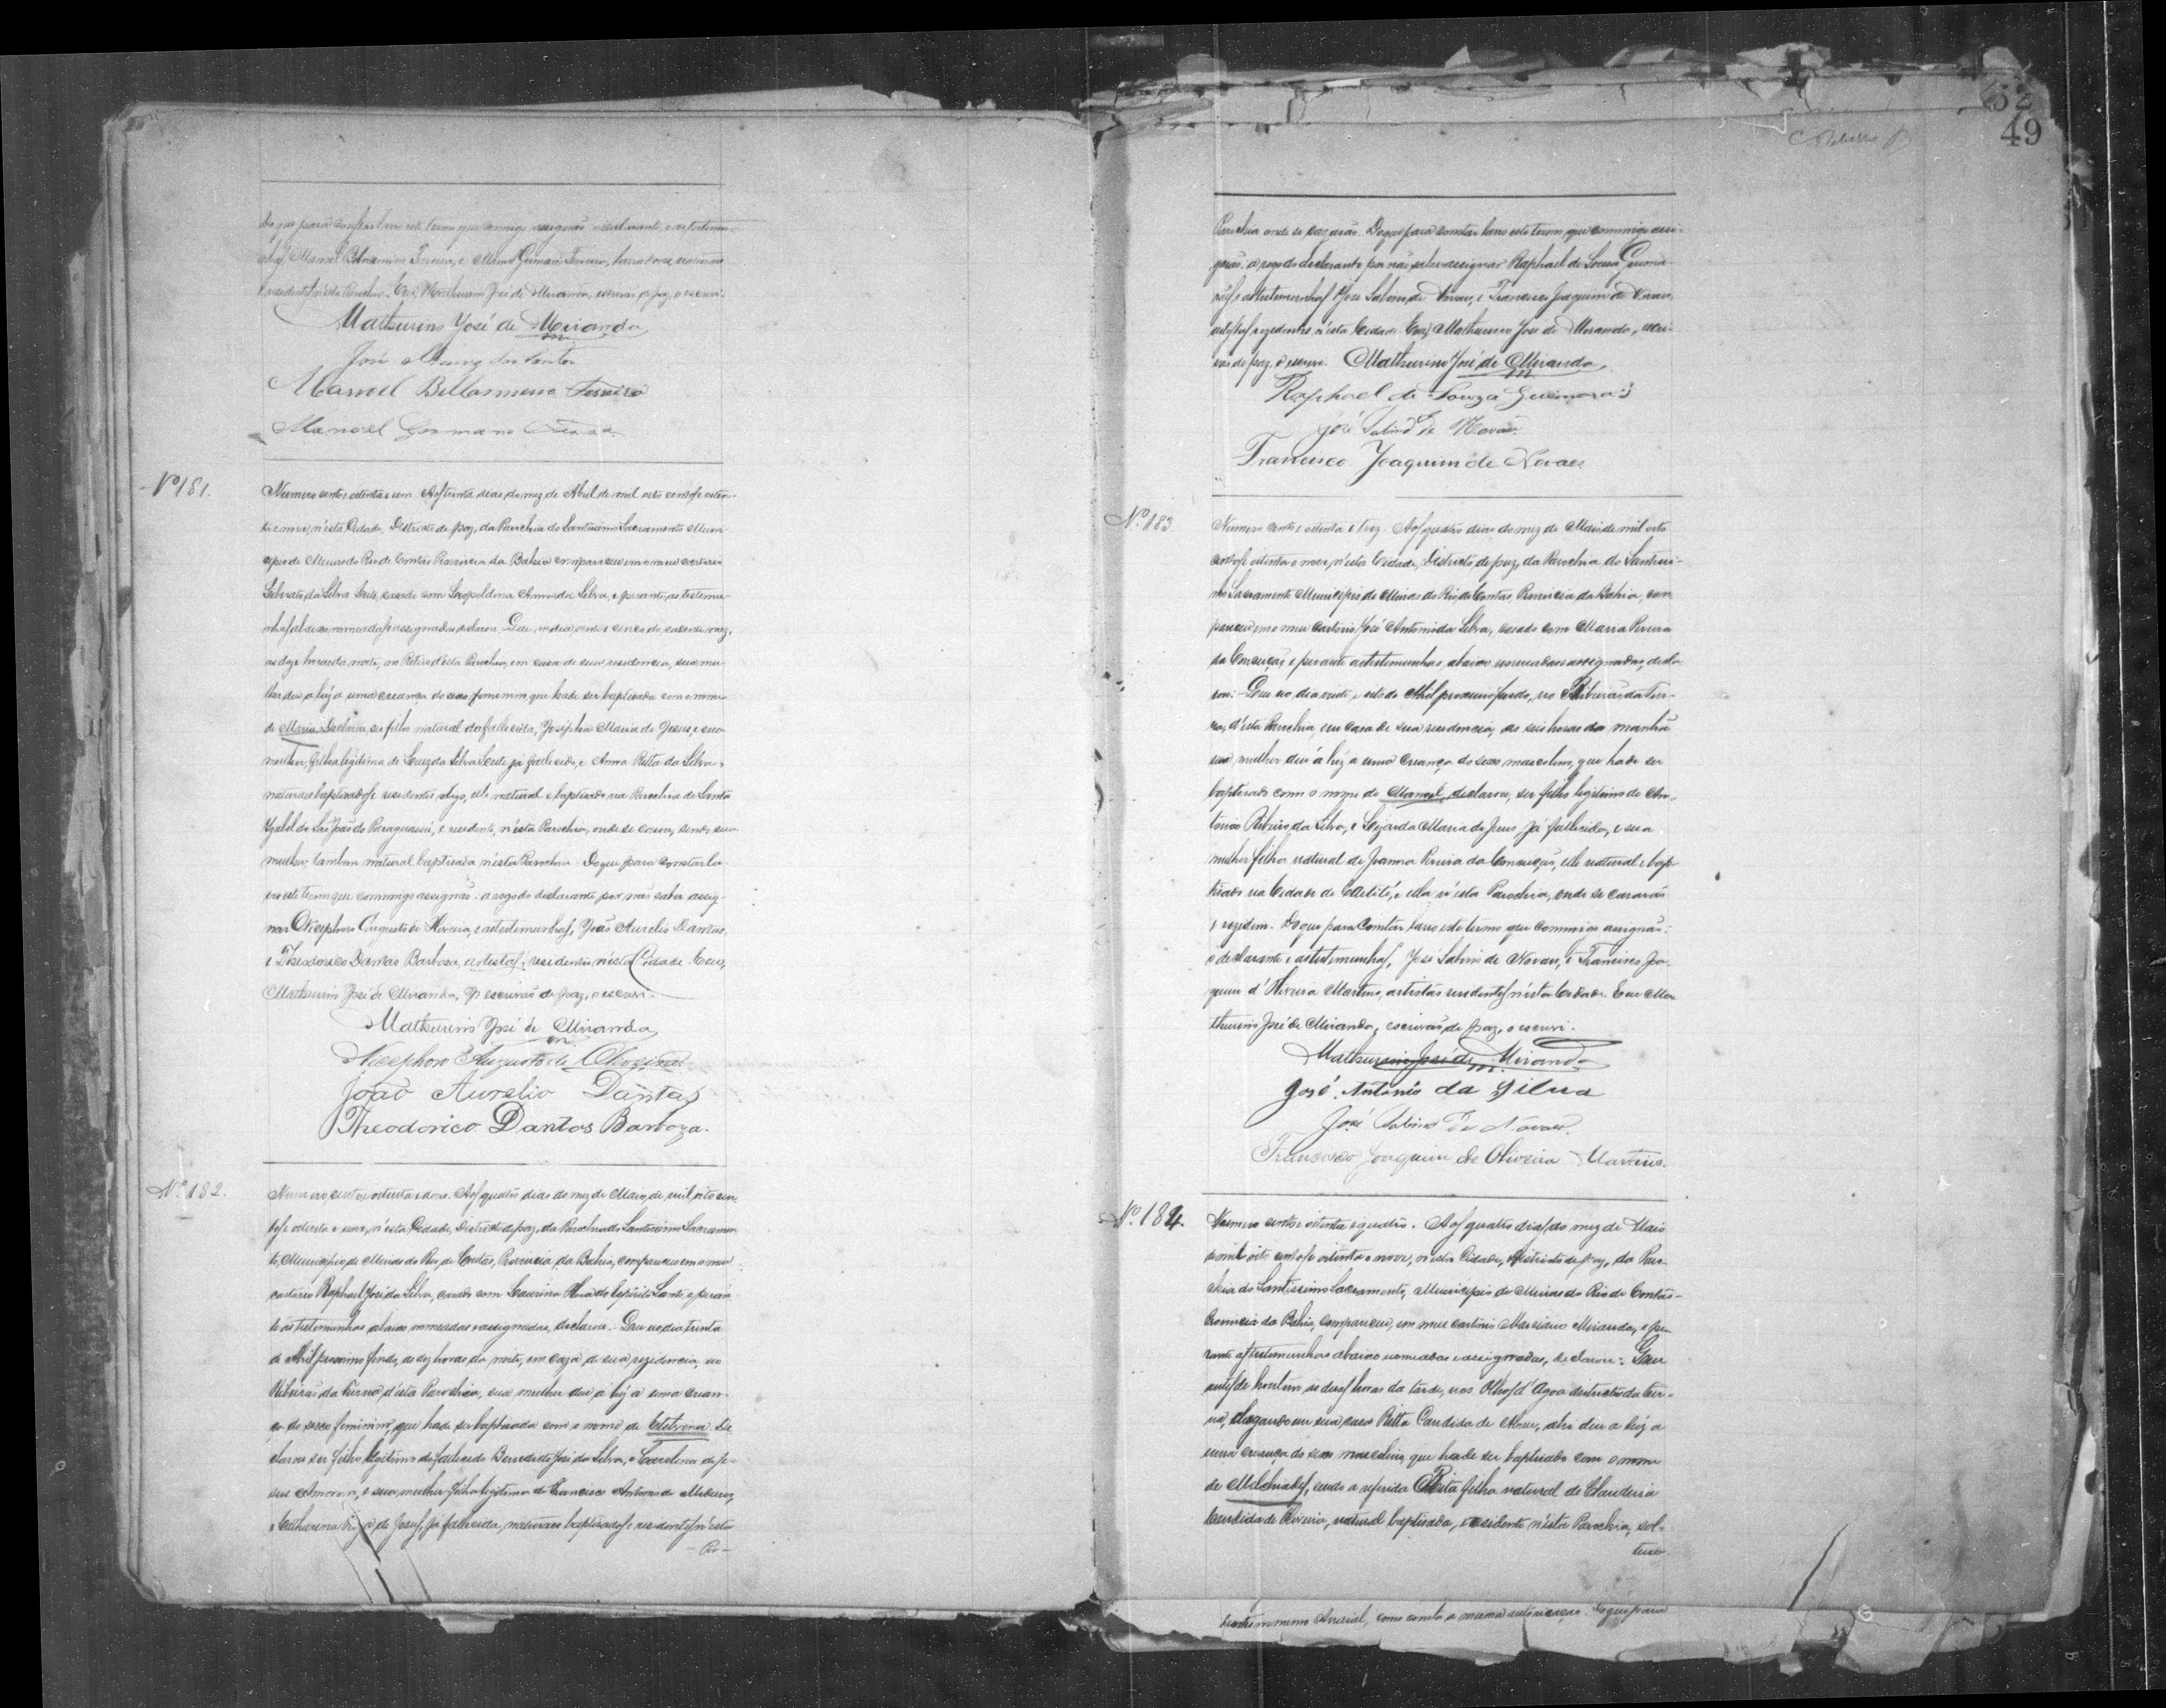 Do que para constar lavro este termo que commigo assignão o declarante e as testemu-
nhas, Manoel Bellarmino Ferreira, e Manoel Germano Ferreira, lavradores, naturaes
e residentes n'esta Parochia. Eu, Mathurino José de Miranda, escrivão de paz, o escrevi.
Mathurino José de Miranda
José dos Santos
Manoel Bellarmino Ferreira
Manoel Germano
Nº 181.
Numero cento e oitenta e um. Aos trinta dias do mez de Abril de mil oito centos e oiten-
ta e nove, n'esta Cidade, Districto de paz, da Parochia do Santissimo Sacramento Muni-
cipio de Minas do Rio de Contas Provincia da Bahia compareceu em o meu cartorio
da Silva Leite, casado com Leopoldina Anna da Silva, e perante as testemu-
nhas abaixo nomeadas e assignadas declarou: Que, no dia vinte e cinco do corrente mez,
as doze horas da noite, no Retiro d'esta Parochia, em casa de sua residencia, sua mu-
lher deu a luz a uma creança do sexo feminino, que hade ser baptisada com o nome
de Maria. Declarou ser filho natural da fallecida, Josépha Maria de Jesus, e sua
mulher, filha legitima de Luiz da Silva Leite já fallecido, e Anna Ritta da Silva,
naturaes baptisados e residentes digo, elle natural e baptisado na Parochia de Santa
Yzabel do São João do Paraguassú, e residente, n'esta Parochia, onde se casou, sendo sua
mulher, tambem natural baptisada n'esta Parochia. Do que para constar la-
vro este termo que commigo assignão: a rogo do declarante por não saber assig-
nar Nicephoro Augusto de Oliveira, e as testemunhas, João Aurelio Dantas,
e Theodorico Dantas Barbosa, artistas, residentes n'esta Cidade. Eu,
Mathurino José de Miranda, escrivão de paz, o escrevi.
Mathurino José de Miranda
Nicephoro Augusto de Oliveira.
João Aurelio Dantas
Theodorico Dantas Barboza.
Nº 182.
Numero cento e oitenta e dous. Aos quatro dias do mez de Maio, de mil oito cen-
tos e oitenta e nove, n'esta Cidade, Districto de paz, da Parochia do Santissimo Sacramen-
to, Municipio de Minas do Rio de Contas, Provincia da Bahia, compareceu em o meu
cartorio Raphael José da Silva, casado com do Espirito Santo, e peran-
te as testemunhas abaixo nomeadas e assignadas, declarou: Que no dia trinta
de Abril proximo findo, as dez horas da noite, em caza de sua rezidencia, no
Ribeirão da Furna d'esta Parochia, sua mulher deu á luz a uma crean-
ça do sexo feminino, que hade ser baptisada com o nome de De-
clarou ser filho legitimo do fallecido Benedicto José da Silva, e Carolina de Je-
sus e sua mulher filha legitima de Francisco Antonio de
e Catharina de Jesus, já fallecida, naturaes baptisados e residentes n'esta
- Par-
52
49
Parochia onde se cazarão. Do que para constar lavro este termo, que commigo assi-
gnão: a rogo do declarante por não saber assignar Raphael de Souza Guima-
rães, e as testemunhas José Sabino de Novaes, e Francisco Joaquim de Novaes,
artistas rezidentes n'esta Cidade. Eu, Mathurino José de Miranda, escri-
vão de paz, o escrevi. Mathurino José de Miranda.
Raphael de Souza Guimarães
José Sabino de Novaes.
Francisco Joaquim de Novaes
Nº 183.
Numero cento e oitenta e trez. Aos quatro dias do mez de Maio de mil oito
centos e oitenta e nove, n'esta Cidade, Districto de paz, da Parochia do Santissi-
mo Sacramento Municipio de Minas do Rio de Contas, Provincia da Bahia, com
pareceu em o meu cartorio José Antonio da Silva, casado com Maria Pereira
da Conceição, e perante as testemunhas, abaixo nomeadas e assignadas, decla
rou: Que no dia vinte e oito de Abril proximo findo, no Ribeirão da Fur-
na, d'esta Parochia, em casa de sua residencia, as seis horas da manhã
sua mulher deu á luz a uma creança do sexo masculino, que hade ser
baptisado com o nome de Manoel, declarou, ser filho legitimo de An-
tonio Ribeiro da Silva, e Maria de Jesus, já fallecida, e sua
mulher filha natural de Joanna Pereira da Conceição, elle natural e bap-
tisado na Cidade de Caetité, e ella n'esta Parochia, onde se casarão
e rezidem. Do que para constar lavro este termo que commigo assignão:
o declarante e as testemunhas, José Sabino de Novaes, e Francisco Joa-
quim d'Oliveira Martins, artistas residentes n'esta Cidade. Eu Ma-
thurino José de Miranda, escrivão, de paz, o escrevi.
Mathurino José de Miranda
José Antonio da Silva
José Sabino de Novaes.
Francisco Joaquim de Oliveira Martins.
Nº 184.
Numero cento e oitenta e quatro. Aos quatro dias do mez de Maio
de mil oito centos e oitenta e nove, n'esta Cidade, Districto de paz, da Paro-
chia do Santissimo Sacramento, Municipio de Minas do Rio de Contas-
Provincia da Bahia, compareceu, em meu cartorio Marciano Miranda, e pe-
rante as testemunhas abaixo nomeadas e assignadas, declarou: Que
antes de hontem as duas horas da tarde, nos Olhos d'Agoa districto da Fur-
na, chegando em sua casa Ritta Candida de ahi deu a luz a
uma creança do sexo masculino, que hade ser baptisado com o nome
de Melchiades, sendo a referida Ritta filha natural de Claudina
Candida de Oliveira, natural baptisada, e residente n'esta Parochia, sol-
teira.
no mesmo Arraial, como consta a mesma autorisação. Do que para